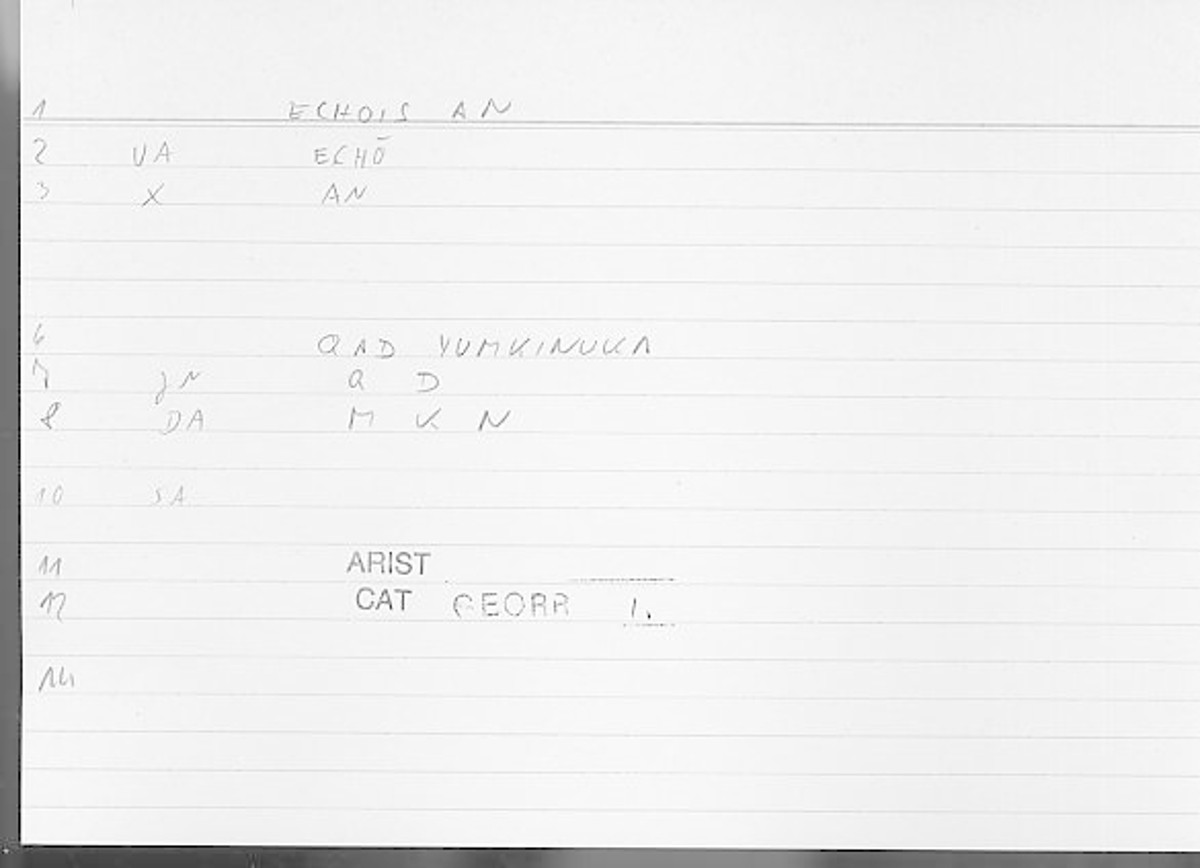 1 ECHOIS AN
2 VA ECHŌ
3 X AN
6 QAD YUMKINUKA
7 JN Q D
8 DA M K N
10 SA
11 ARIST
12 CAT GEORR 1.
14